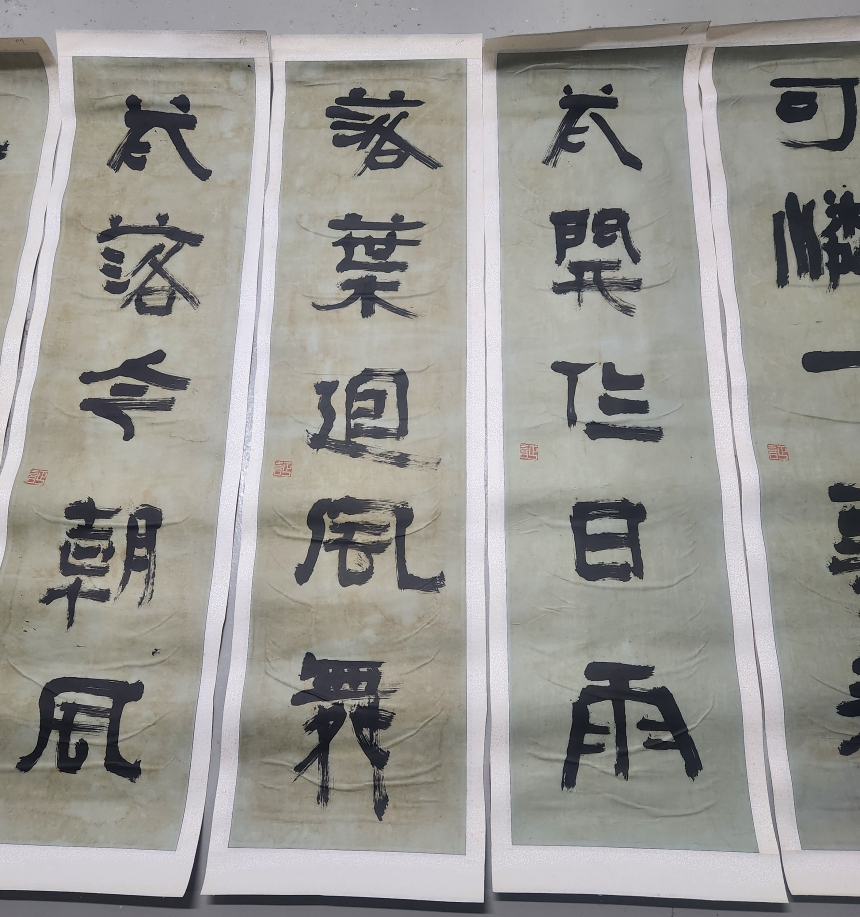 可憐一
花開作日雨
落葉迴風舞
花落今朝風